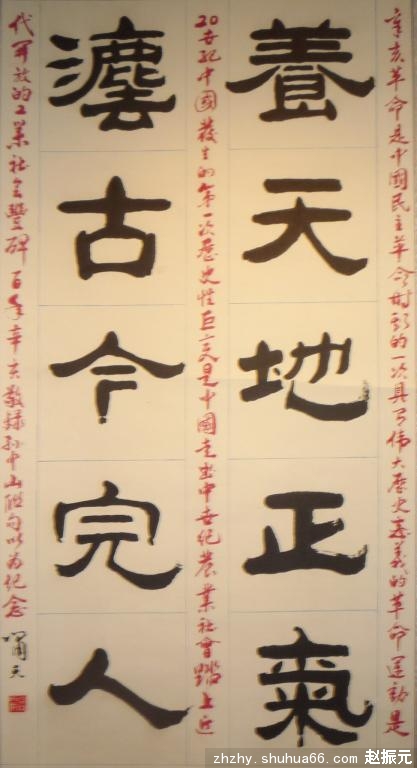 辛亥革命是中國民主革命时期的一次具有伟大歷史意義的革命運動是
養天地正氣
20世纪中國發生的第一次歷史性巨变是中國走出中世纪農業社會踏上近
灋古今完人
代开放的工業社会豐碑百年辛亥敬録孙中山联句以为纪念
嘯天
zhzhy.shuhua66.com 赵振元